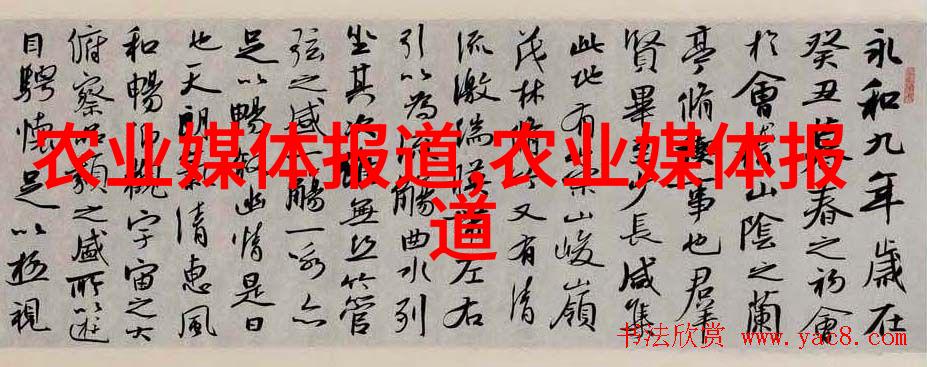 农业媒体报道,农业媒体报
道
永和九年歲在
癸丑暮春之初會
於會稽山陰之蘭
亭脩禊事也羣
賢畢至少長咸集
此地有崇山峻嶺
茂林脩竹又有清
流激湍映帶左右
引以為流觴曲水列
坐其次雖無絲竹管
弦之盛一觴一詠亦
足以暢敘幽情是日
也天朗氣清惠風
和暢仰觀宇宙之大
俯察品類之盛所以遊
目騁懷足以極視
书法欣赏 www.yac8.com